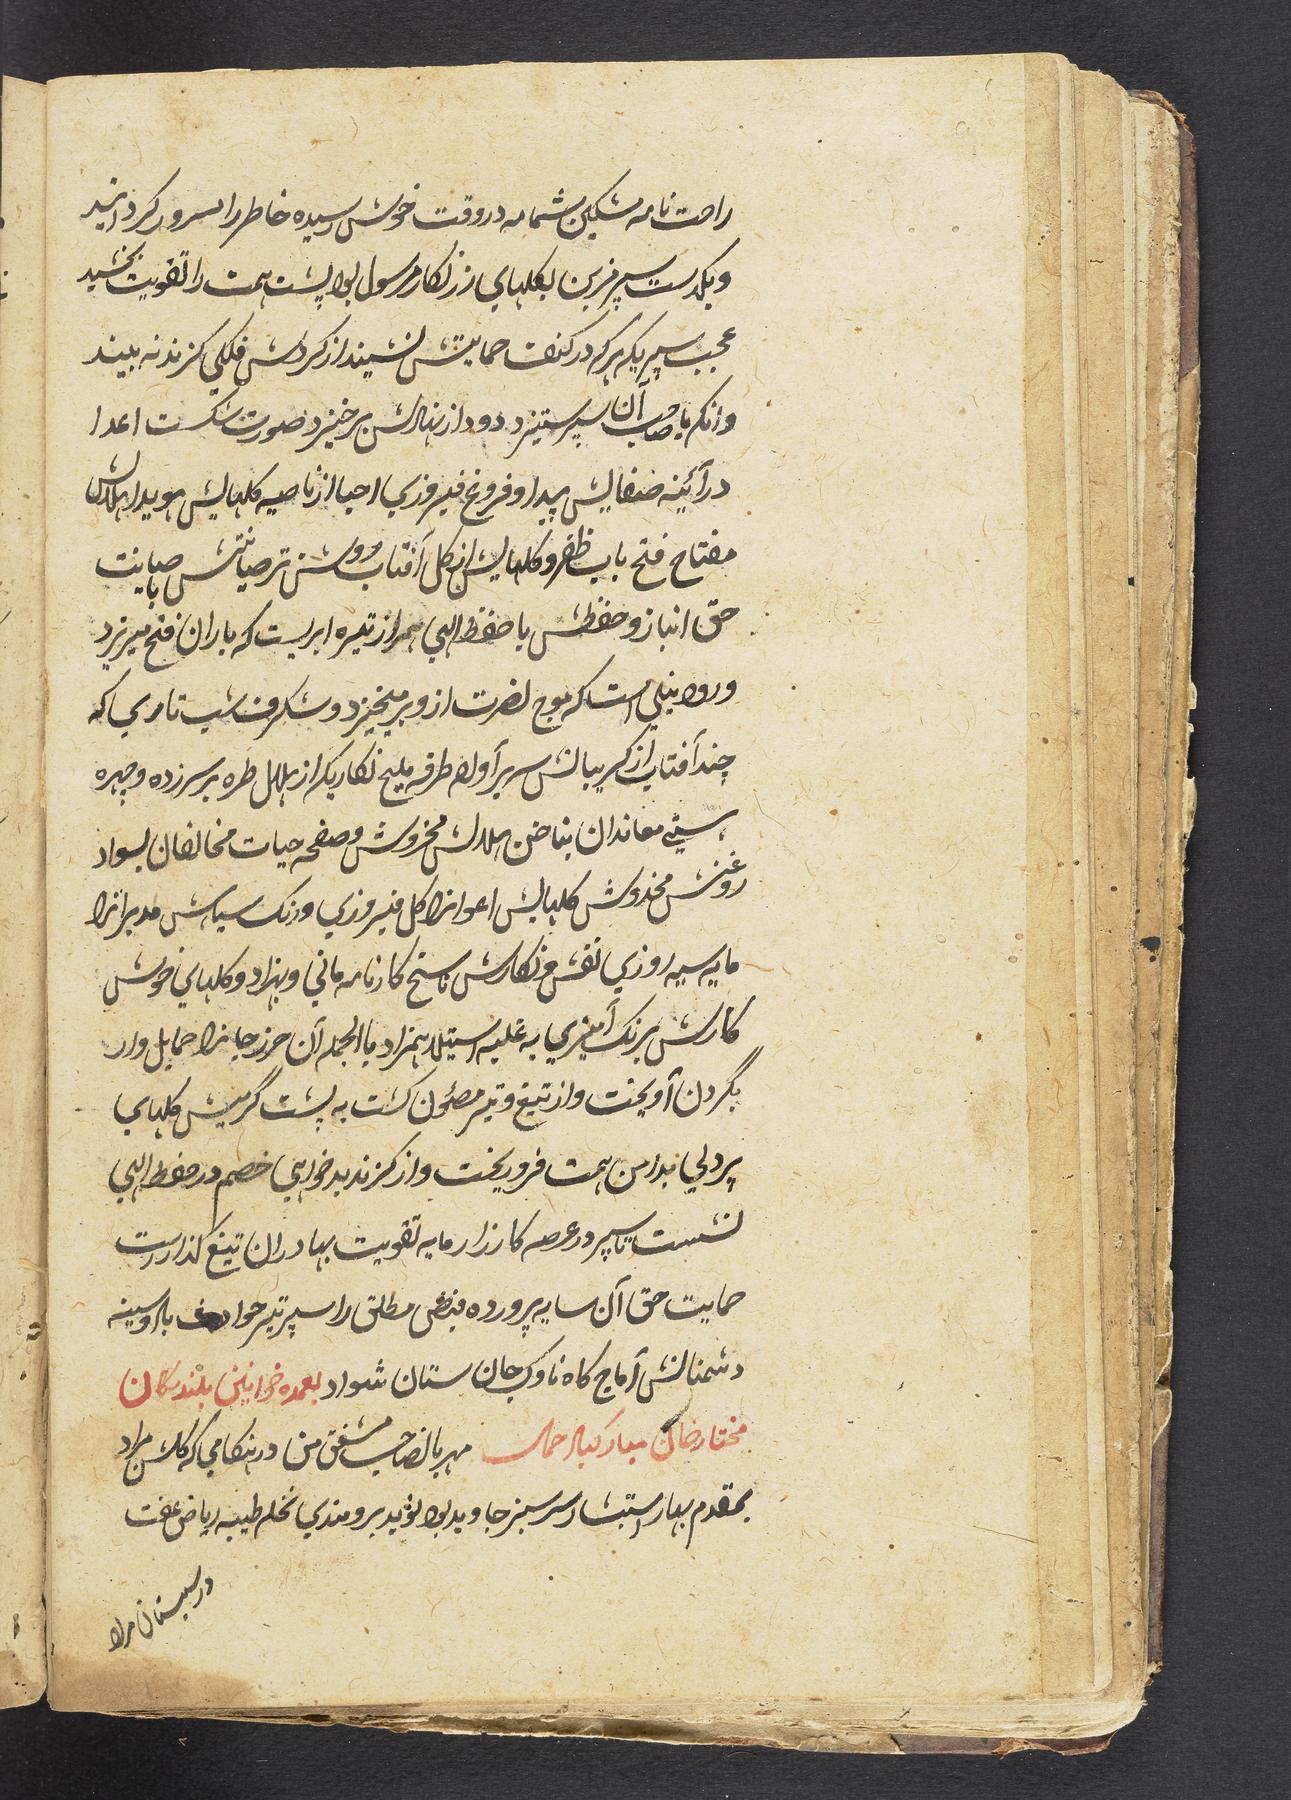 راحت نامه مشکین شمامه در وقت خوش رسیده خاطر را مسرور کردانید
و یکدست سپر مزین بکلهای زرنکار مرسول بود پشت همت را تقویت بخشید
عجب سپریکه هرکه در کنف حمایتش نشیند از کردش فلکی کزند نه بیند
وانکه با صاحب آن سپر ستیزد دود از نهادش برخیزد صورت شکست اعدا
در آئینه صفایش پیدا و فروغ فیروزی احبا از ناصیه کلهایش هویدا هلالش
مفتاح فتح باب ظفر و کلهایش از کل آفتاب روشن تر صیانتش با صیانت
حق انباز و حفظش با حفظ الهی همراز تیره ابریست که باران فتح میریزد
و رود نیلی است که موج نصرت ازو برمیخیزد و شکرف شب تاری که
چند آفتاب از کریبانش سر برآورد طرفه ملیح نکاریکه از هلال طره بر سر زده و چهره
هستی معاندان بناخن هلالش مخروش و صفحه حیات مخالفان بسواد
روغنش مخدوش کلهایش اعوانرا کل فیروزی و رنک سیاهش مدبرانرا
مایه سیه روزی نقش و نکارش ناسخ کارنامه مانی و بهزاد و کلهای خوش
کارش برنک آمیزی به غلبه استیلا همزاد باالجمله آن حرز جانرا حمایل وار
بگردن آویخت و از تیغ و تیر مصئون کشت به پشت گرمیش کلهای
پردلی بدامن همت فرو ریخت و از کزند بدخواهی خصم در حفظ الهی
نشست تا سپر در عرصه کارزار مایه تقویت بهادران تیغ کذار است
حمایت حق آن سایه پرورده فیض مطلق را سپر تیر حوادث باد و سینه
دشمنانش آماج کاه ناوک جان ستان شواد بعمده خوانین بلند مکان
مختار خان مبارکباد مهربان صاحب مشفق من در هنکامی که کلشن مراد
بمقدم بهار استبشار سرسبز جاوید بود نوید برومندی نخلم طیبه ریاض عفت
در بستان مراد